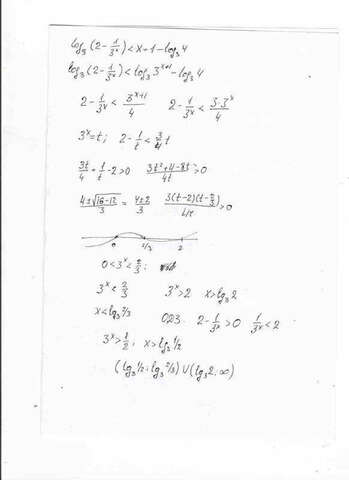 log₃(2 - 1/3ˣ) < x - 1 - log₃4
log₃(2 - 1/3ˣ) < log₃3ˣ⁺¹ - log₃4
2 - 1/3ˣ < 3ˣ⁺¹/4 2 - 1/3ˣ < 3·3ˣ/4
3ˣ = t; 2 - 1/t < 3/4 t
3t/4 + 1/t - 2 > 0 3t² + 4 - 8t/4t > 0
4 ± √16 - 12/3 = 4 ± 2/3 3(t - 2)(t - 2/3)/4t > 0
0 2/3 2
0 < 3ˣ < 2/3;
3ˣ < 2/3 3ˣ > 2 x > log₃2
x < log₃2/3 ОДЗ. 2 - 1/3ˣ > 0 1/3ˣ < 2
3ˣ > 1/2; x > log₃1/2
(log₃1/2; log₃2/3) ∪ (log₃2; ∞)